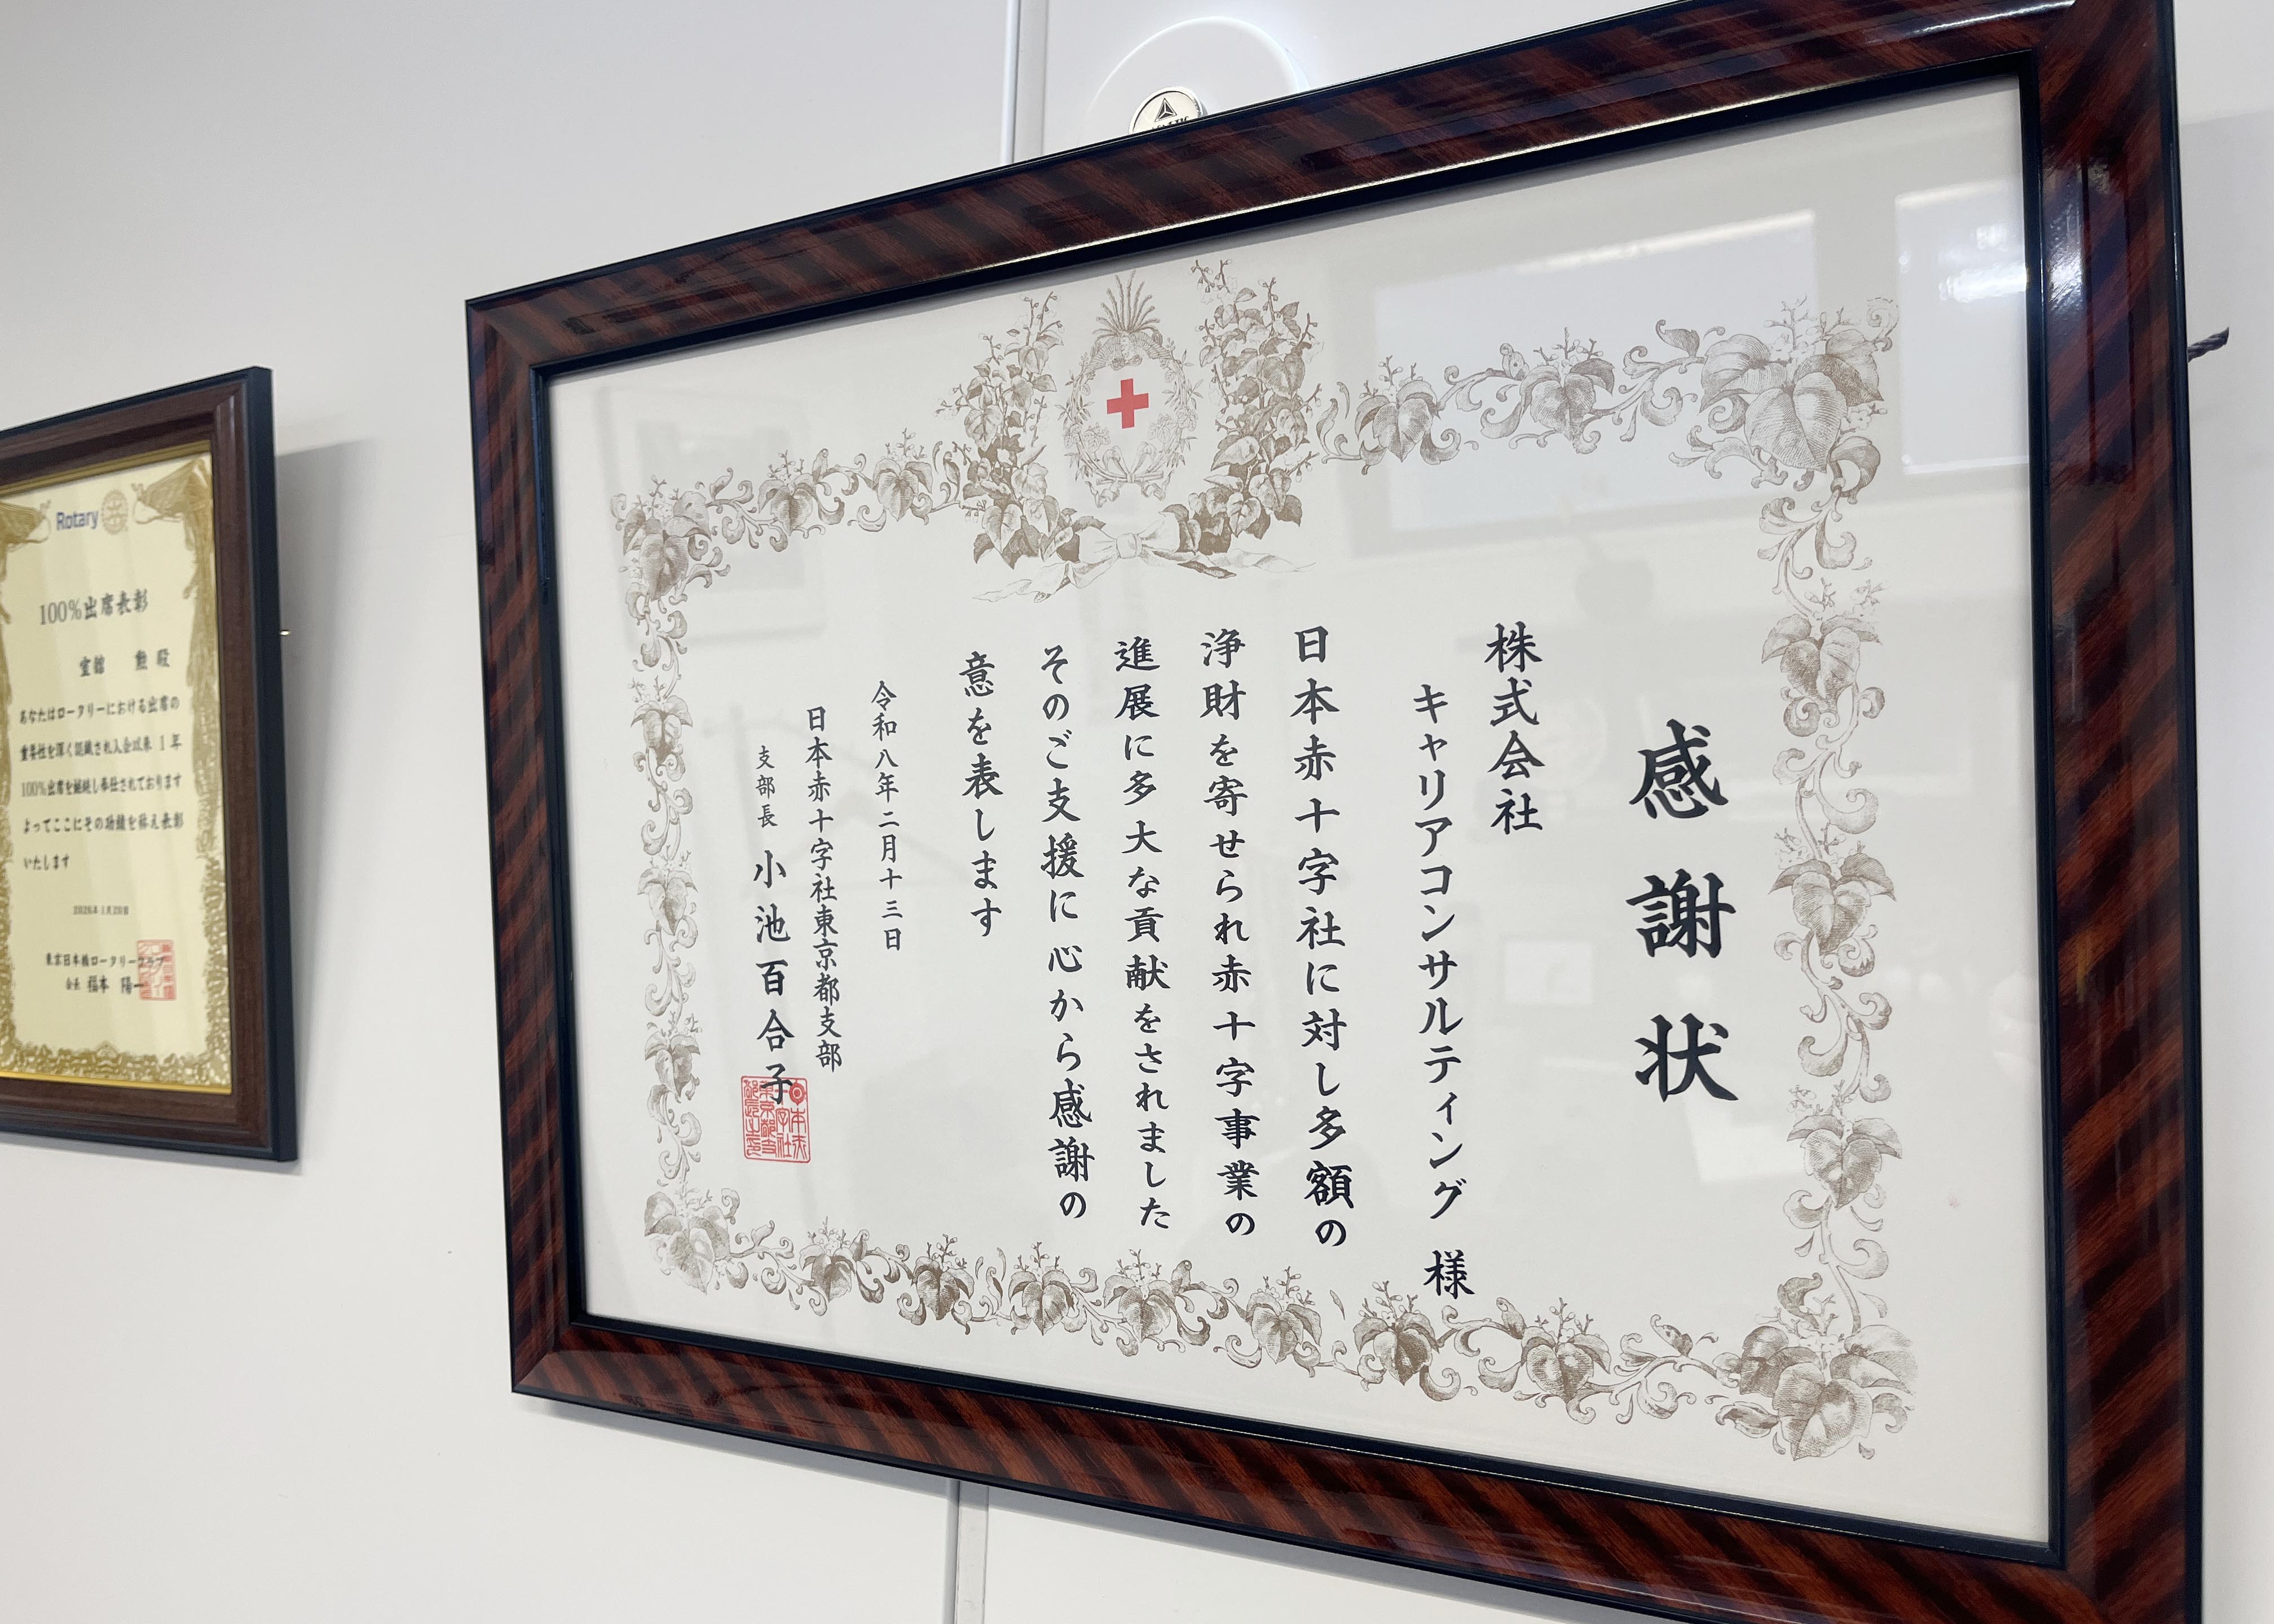 感謝状
株式会社
キャリアコンサルティング 様
日本赤十字社に対し多額の
浄財を寄せられ赤十字事業の
進展に多大な貢献をされました
そのご支援に心から感謝の
意を表します
令和八年二月十三日
日本赤十字社東京都支部
支部長 小池百合子
Rotary
100%出席表彰
室舘 勲 殿
あなたはロータリーにおける出席の
重要性を深く認識され入会以来 1 年
100%出席を継続し奉仕されております
よってここにその功績を称え表彰
いたします
東京日本橋ロータリークラブ
会長 福本 陽一